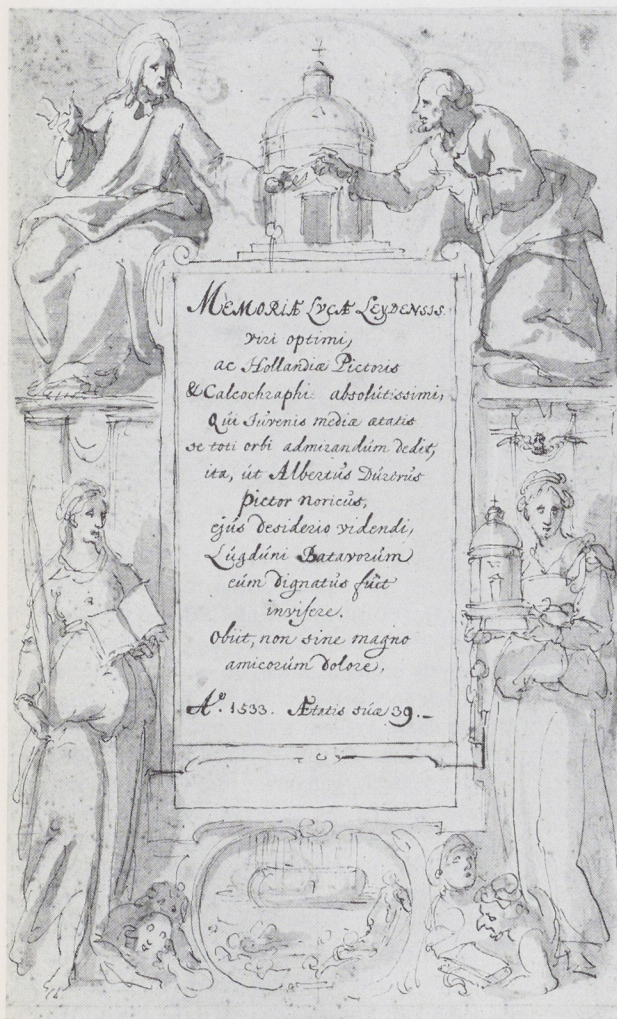 MEMORIÆ LVCÆ LEYDENSIS.
viri optimi,
ac Hollandiæ Pictoris
& Calcochraphi absolutissimi,
Qui Iuvenis mediæ ætatis
se toti orbi admirandum dedit,
ita, út Albertús Dúrerús
pictor Noricús,
ejús desiderio videndi,
Lúgdúni Batavorúm
eúm dignatús fúit
invisere.
Obiit, non sine magno
amicorúm dolore,
Aº. 1533. Ætatis súæ 39.